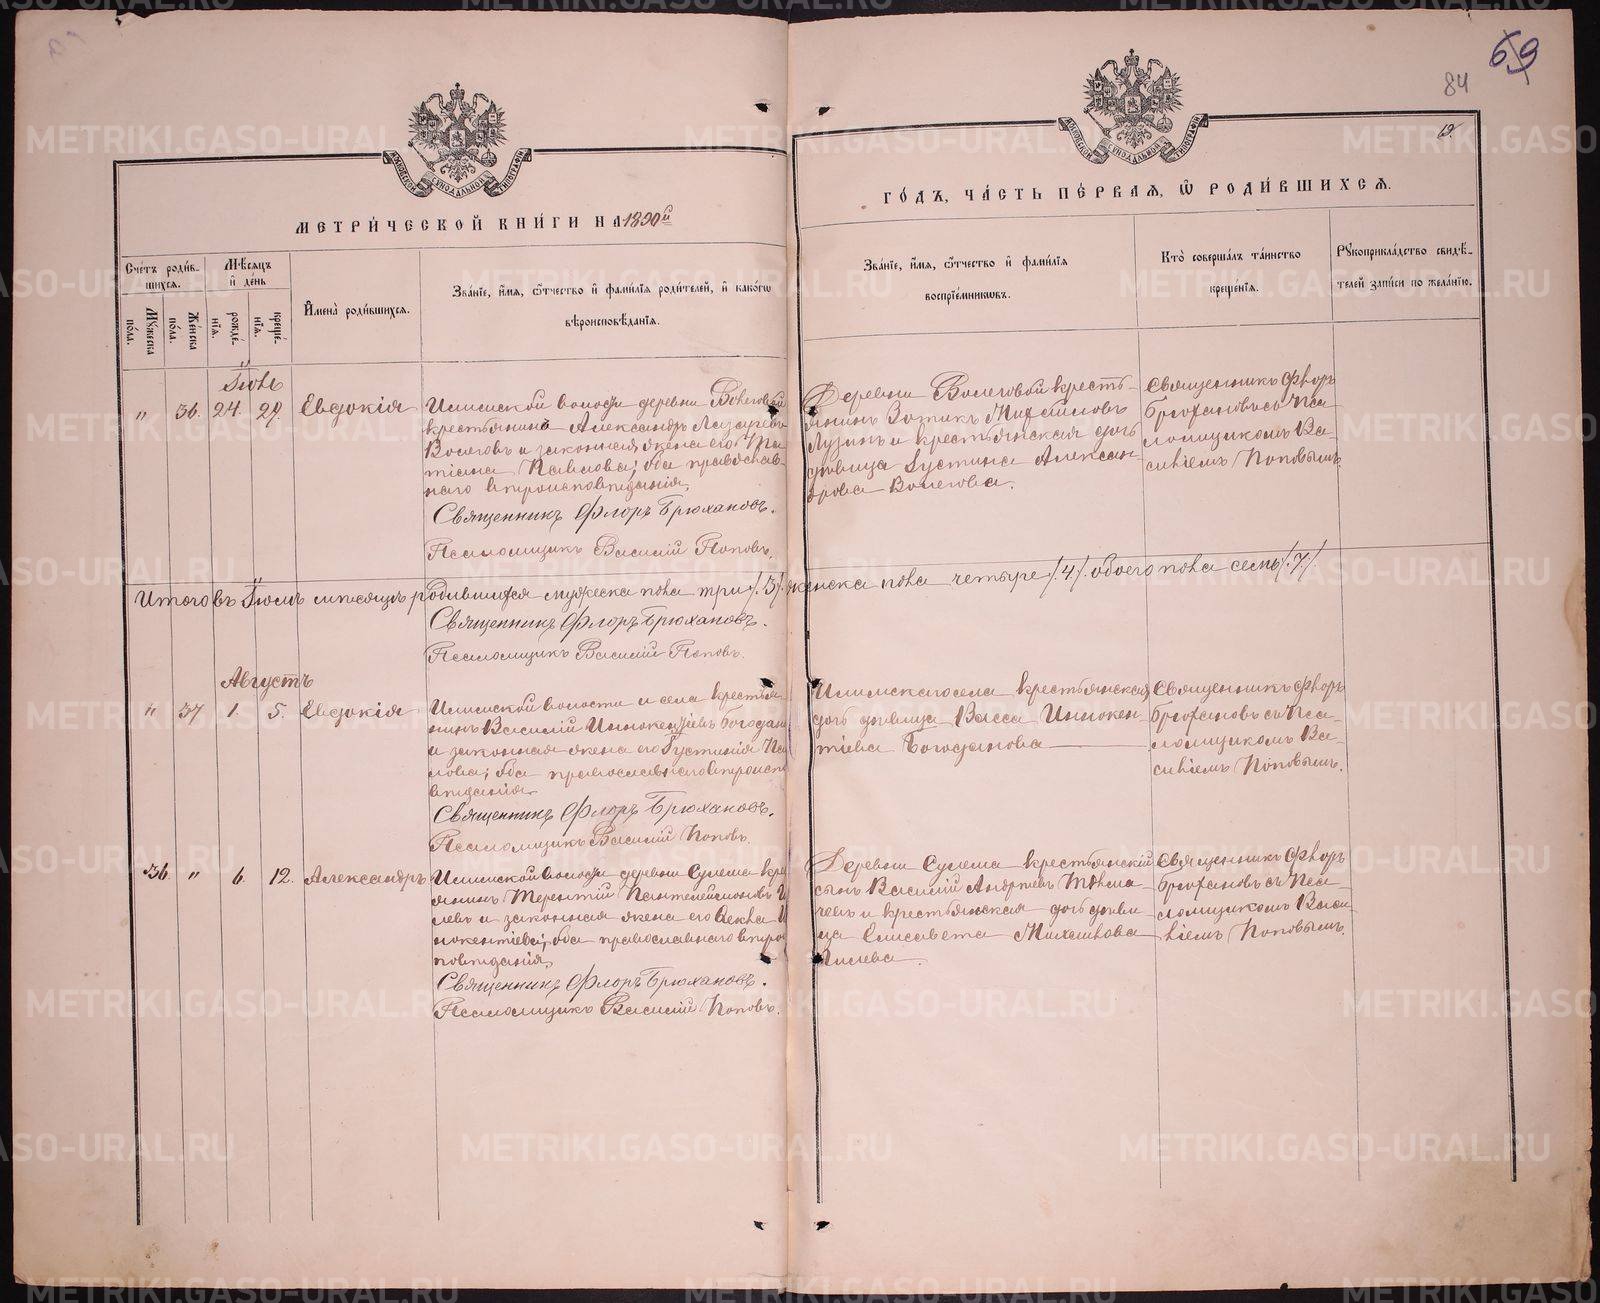 69
84
19.
МОСКОВСКОЙ СѴНОДАЛЬНОЙ ТИПОГРАФІИ
МОСКОВСКОЙ СѴНОДАЛЬНОЙ ТИПОГРАФІИ
МЕТРИ́ЧЕСКОЙ КНИ́ГИ НА 1890й
ГО́ДЪ, ЧА́СТЬ ПЕ́РВАЯ, Ѡ РОДИ́ВШИХСЯ.
Сче́тъ роди́в-
шихся.
Мꙋжеска пола.
Женска пола.
Мѣсяцъ
и день
рожде-
нія.
креще-
нія.
Имена̀ роди́вшихся.
Зва́ніе, и́мя, ѻ҆́тчество и҆ фамилія родителей, и҆ како́гѡ
вѣроисповѣ́данія.
Зва́ніе, и́мя, ѻ҆́тчество и҆ фами́лія
воспріе́мникѡвъ.
Кто̀ соверша́лъ та́инство
креще́нія.
Рꙋкоприкла́дство свидѣ-
телей за́писи по жела́нію.
Іюль
" 36. 24. 29. Евдокія
Илимской волости деревни Волеговой
крестьянинъ Александръ Лазаревъ
Волеговъ и законная жена его Та-
тіана Павлова; оба православ-
наго вѣроисповѣданія.
Священникъ Флоръ Брюхановъ.
Псаломщикъ Василій Поповъ.
Деревни Волеговой кресть-
янинъ Михайловъ
Лузинъ и крестьянская дочь
дѣвица Іустина Алексан-
дрова Волегова.
Священникъ Флоръ
Брюхановъ съ Пса-
ломщикомъ Ва-
силіемъ Поповымъ.
Итого въ Іюлѣ мѣсяцѣ родившихся мужеска пола три /3/. женска пола четыре /4/. обоего пола семь /7/.
Священникъ Флоръ Брюхановъ.
Псаломщикъ Василій Поповъ.
Августъ
" 37 1. 5. Евдокія
Илимской волости и села крестья-
нинъ Василій Иннокентіевъ Богодан
и законная жена его Іустинія Па
лова; оба православнаго вѣроиспо
вѣданія.
Священникъ Флоръ Брюхановъ.
Псаломщикъ Василій Поповъ.
Илимскаго села крестьянская
дочь дѣвица Васса Иннокен-
тіева Богоданова
Священникъ Флоръ
Брюхановъ съ Пса-
ломщикомъ Ва-
силіемъ Поповымъ.
36. " 6. 12. Александръ
Илимской волости деревни Сулема кре
янинъ Терентій Пантелеймоновъ
левъ и законная жена его Ѳекла И
нокентіева; оба православнаго вѣрои
повѣданія.
Священникъ Флоръ Брюхановъ.
Псаломщикъ Василій Поповъ.
Деревни Сулема крестьянскій
сынъ Василій Андреевъ Толма-
чевъ и крестьянская дочь дѣви
ца Елисавета Михайлова
Священникъ Флоръ
Брюхановъ съ Пса-
ломщикомъ Васи-
ліемъ Поповымъ.
METRIKI.GASO-URAL.RU